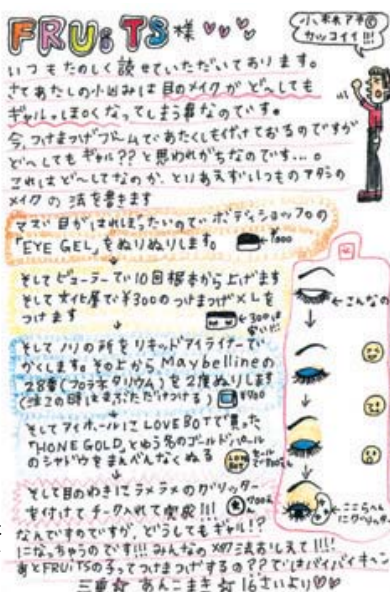 FRUiTS様
小林アキ©
カッコイイ!!!
いつもたのしく読せていただいております。
さてあたしの小凶みは目のメイクがど〜しても
ギャルっぽくなってしまう事なのです。
今、つけまつげブームであたくしも付けておるのですが
ど〜してもギャル??と思われがちなのです...。
これはど〜してなのか、とりあえずいつものアタシの
メイクの法を書きます
マズい目がはれぼったいのでボディショップの
「EYE GEL」をぬりぬりします。 ←¥1000
↓
そしてビューラーで10回根本から上げます
そして文化屋で¥300のつけまつげ×Lを
つけます ←300は安い!!
↓
そしてノリの所をリキッドアイライナーで
かくします。その上からMaybellineの
28番(プラネタリウム)を2度ぬりします
¥700
↓
そしてアイホールにLOVE BOTで買った
「HONE GOLD」とゆう名のゴールドパール
のシャドウをまんべんなくぬる
LOVE BOT
↓
そして目のわきにラメラメのグリッター
を付けてチーク入れて完成!!!
なんですのですが、どうしてもギャル!?
になっちゃうのです!!!みんなのメイク法おしえて!!!
あとFRUiTSの子ってつけまつげするの??ではバイバイキーン
三重☆ あんこまき☆16さいより
←こんなの
↓
↓
↓
ここらへん
にグリッター